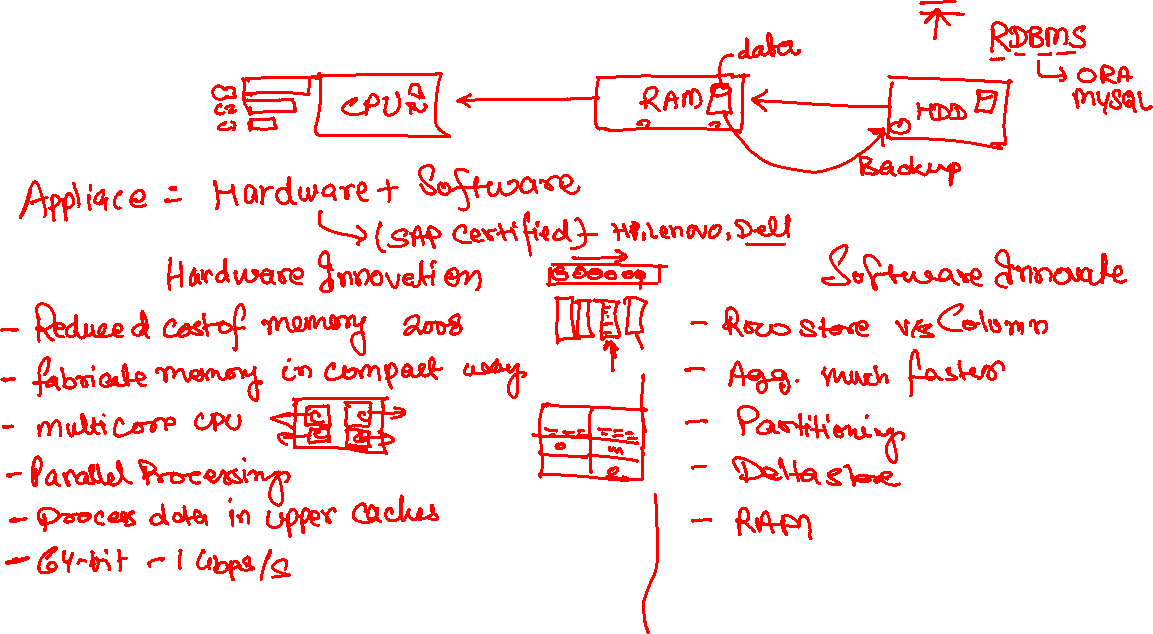 data
RDBMS
ORA
MYSQL
C3
C2
C1
CPU
RAM
HDD
Backup
Appliace = Hardware + Software
(SAP Certified) - HP, Lenovo, Dell
Hardware Innovation
- Reduced cost of memory 2008
- fabricate memory in compact way
- multicore CPU
- Parallel Processing
- Process data in upper caches
- 64-bit - 1 Gbps/s
Software Innovate
- Row store v/s Column
- Agg. much faster
- Partitioning
- Delta store
- RAM